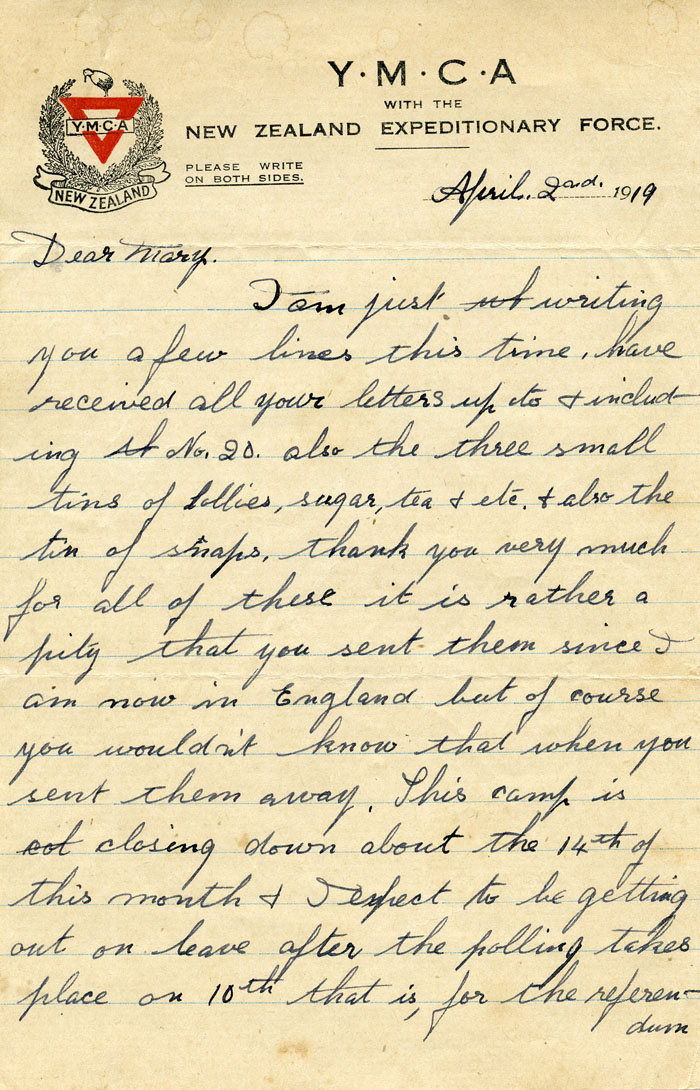 Y·M·C·A
WITH THE
NEW ZEALAND EXPEDITIONARY FORCE.
Y·M·C·A
NEW ZEALAND
PLEASE WRITE
ON BOTH SIDES.
April. 2nd. 1919
Dear Mary.
I am just writing
you a few lines this time, have
received all your letters up to & includ-
ing No. 20. also the three small
tins of lollies, sugar, tea & etc. & also the
tin of snaps, thank you very much
for all of these it is rather a
pity that you sent them since I
am now in England but of course
you wouldn't know that when you
sent them away. This camp is
closing down about the 14th of
this month & I expect to be getting
out on leave after the polling takes
place on 10th that is, for the referen-
dum